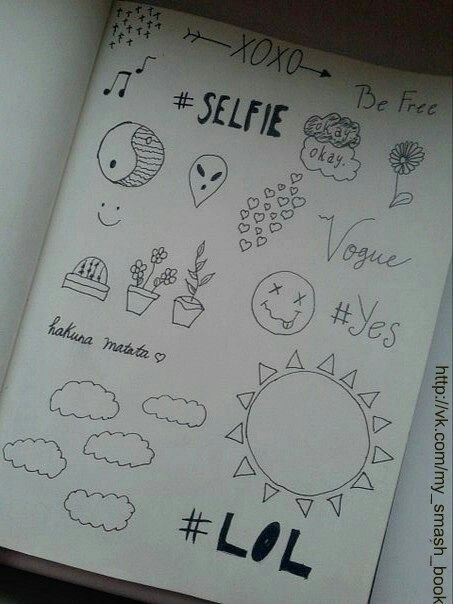 XOXO
Be Free
#SELFIE
okay.
okay.
Vogue
#Yes
hakuna matata
#LOL
http://vk.com/my_smash_book